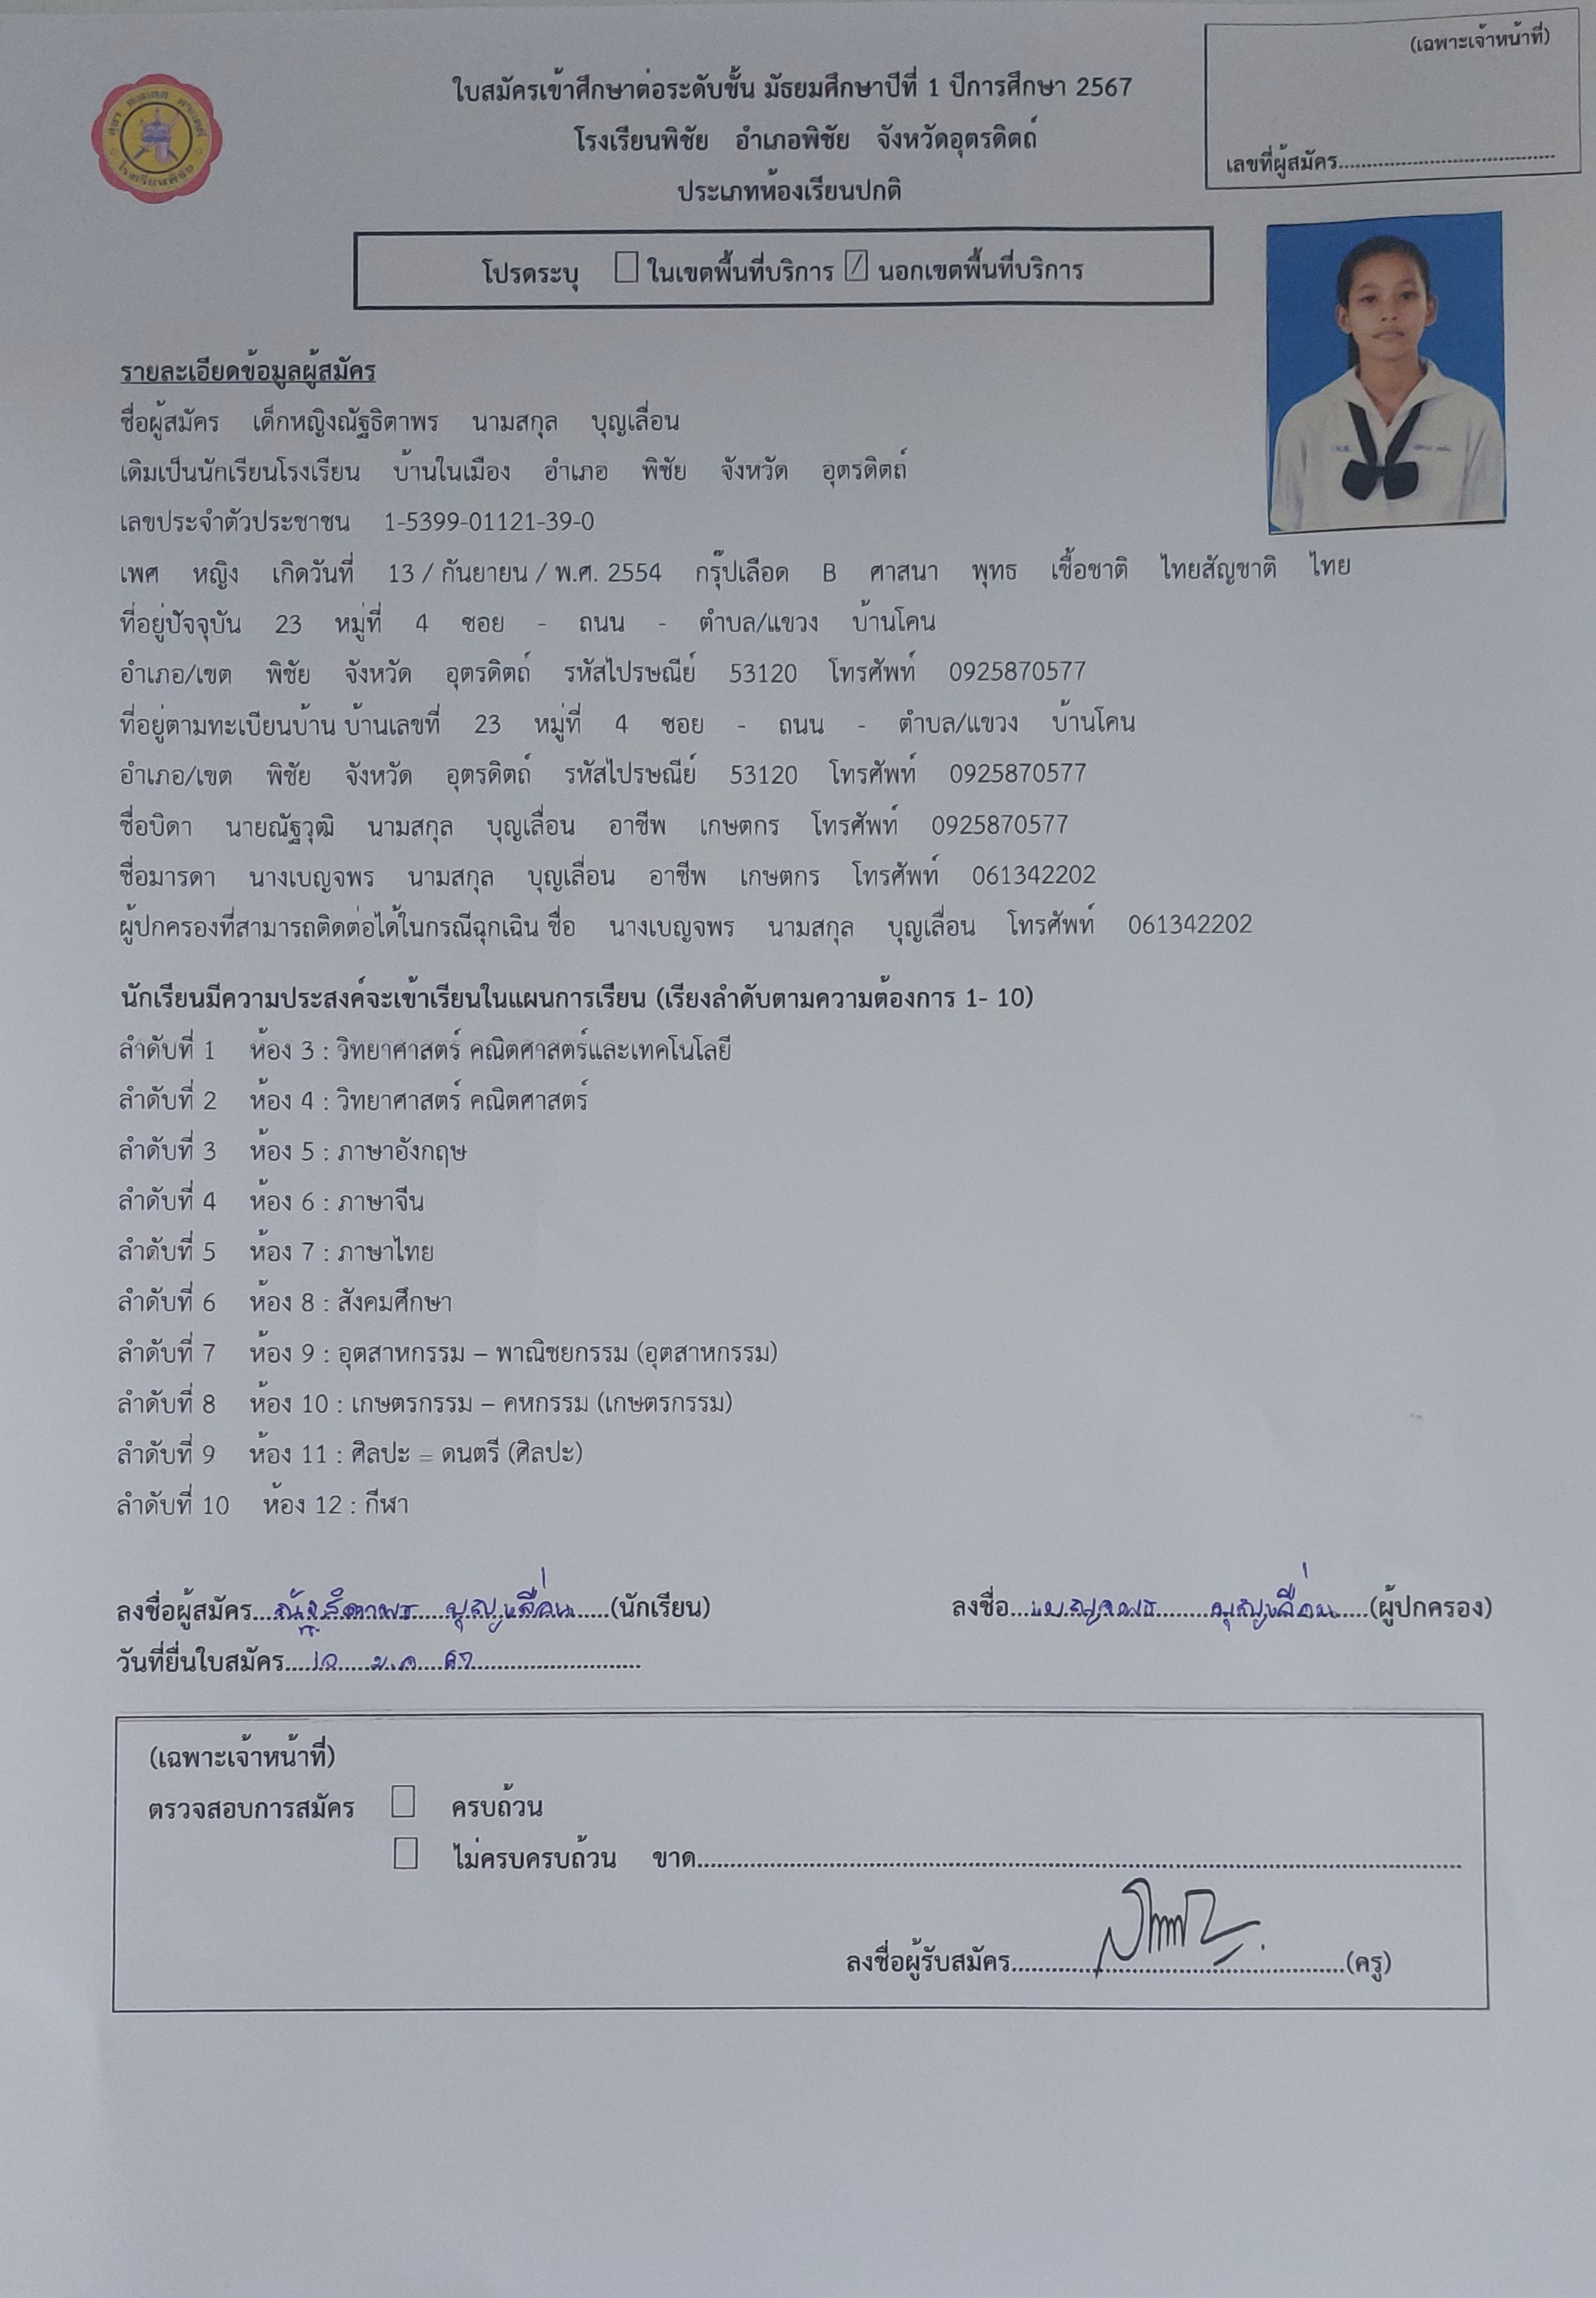 (เฉพาะเจ้าหน้าที่)
เลขที่ผู้สมัคร
โรงเรียนพิชัย
ใบสมัครเข้าศึกษาต่อระดับชั้น มัธยมศึกษาปีที่ 1 ปีการศึกษา 2567
โรงเรียนพิชัย อำเภอพิชัย จังหวัดอุตรดิตถ์
ประเภทห้องเรียนปกติ
โปรดระบุ ในเขตพื้นที่บริการ / นอกเขตพื้นที่บริการ
รายละเอียดข้อมูลผู้สมัคร
ชื่อผู้สมัคร เด็กหญิงณัฐธิตาพร นามสกุล บุญเลื่อน
เดิมเป็นนักเรียนโรงเรียน บ้านในเมือง อำเภอ พิชัย จังหวัด อุตรดิตถ์
เลขประจำตัวประชาชน 1-5399-01121-39-0
เพศ หญิง เกิดวันที่ 13 / กันยายน / พ.ศ. 2554 กรุ๊ปเลือด B ศาสนา พุทธ เชื้อชาติ ไทยสัญชาติ ไทย
ที่อยู่ปัจจุบัน 23 หมู่ที่ 4 ซอย - ถนน - ตำบล/แขวง บ้านโคน
อำเภอ/เขต พิชัย จังหวัด อุตรดิตถ์ รหัสไปรษณีย์ 53120 โทรศัพท์ 0925870577
ที่อยู่ตามทะเบียนบ้าน บ้านเลขที่ 23 หมู่ที่ 4 ซอย - ถนน - ตำบล/แขวง บ้านโคน
อำเภอ/เขต พิชัย จังหวัด อุตรดิตถ์ รหัสไปรษณีย์ 53120 โทรศัพท์ 0925870577
ชื่อบิดา นายณัฐวุฒิ นามสกุล บุญเลื่อน อาชีพ เกษตกร โทรศัพท์ 0925870577
ชื่อมารดา นางเบญจพร นามสกุล บุญเลื่อน อาชีพ เกษตกร โทรศัพท์ 061342202
ผู้ปกครองที่สามารถติดต่อได้ในกรณีฉุกเฉิน ชื่อ นางเบญจพร นามสกุล บุญเลื่อน โทรศัพท์ 061342202
นักเรียนมีความประสงค์จะเข้าเรียนในแผนการเรียน (เรียงลำดับตามความต้องการ 1- 10)
ลำดับที่ 1 ห้อง 3 : วิทยาศาสตร์ คณิตศาสตร์และเทคโนโลยี
ลำดับที่ 2 ห้อง 4 : วิทยาศาสตร์ คณิตศาสตร์
ลำดับที่ 3 ห้อง 5 : ภาษาอังกฤษ
ลำดับที่ 4 ห้อง 6 : ภาษาจีน
ลำดับที่ 5 ห้อง 7 : ภาษาไทย
ลำดับที่ 6 ห้อง 8 : สังคมศึกษา
ลำดับที่ 7 ห้อง 9 : อุตสาหกรรม – พาณิชยกรรม (อุตสาหกรรม)
ลำดับที่ 8 ห้อง 10 : เกษตรกรรม – คหกรรม (เกษตรกรรม)
ลำดับที่ 9 ห้อง 11 : ศิลปะ = ดนตรี (ศิลปะ)
ลำดับที่ 10 ห้อง 12 : กีฬา
ลงชื่อผู้สมัคร ณัฐธิตาพร บุญเลื่อน (นักเรียน) ลงชื่อ เบญจพร บุญเลื่อน (ผู้ปกครอง)
วันที่ยื่นใบสมัคร 67
(เฉพาะเจ้าหน้าที่)
ตรวจสอบการสมัคร ครบถ้วน
ไม่ครบครบถ้วน ขาด
ลงชื่อผู้รับสมัคร (ครู)